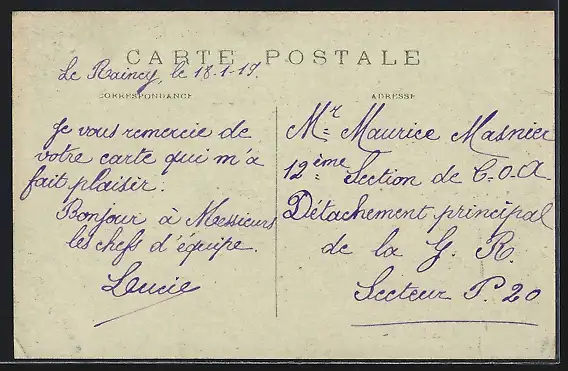 CARTE POSTALE
Le Raincy, le 18-1-19.
CORRESPONDANCE
ADRESSE
Je vous remercie de
votre carte qui m'a
fait plaisir.
Bonjour à Messieurs
les chefs d'équipe.
Lucie
Mr Maurice Masnier
12ème Section de C.O.A.
Détachement principal
de la G. R.
Secteur P. 20